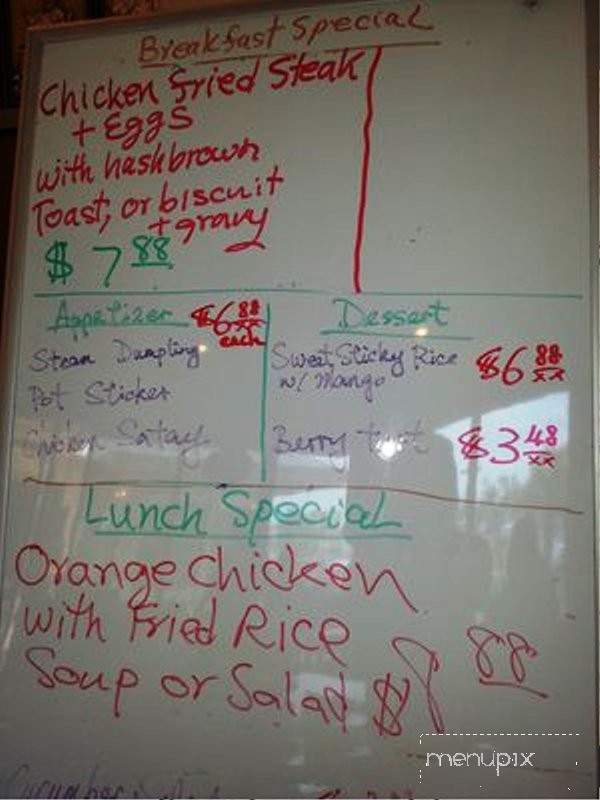 Breakfast Special
Chicken fried Steak
+ Eggs
with hashbrown
Toast, or biscuit
+ gravy
$ 7 88
Appetizer $6 88/xx
each
Steam Dumpling
Pot Sticker
Chicken Satay
Dessert
Sweet Sticky Rice $6 88/xx
w/ Mango
Berry tart $3 48/xx
Lunch Special
Orange Chicken
with Fried Rice
Soup or Salad $8 88
menupix